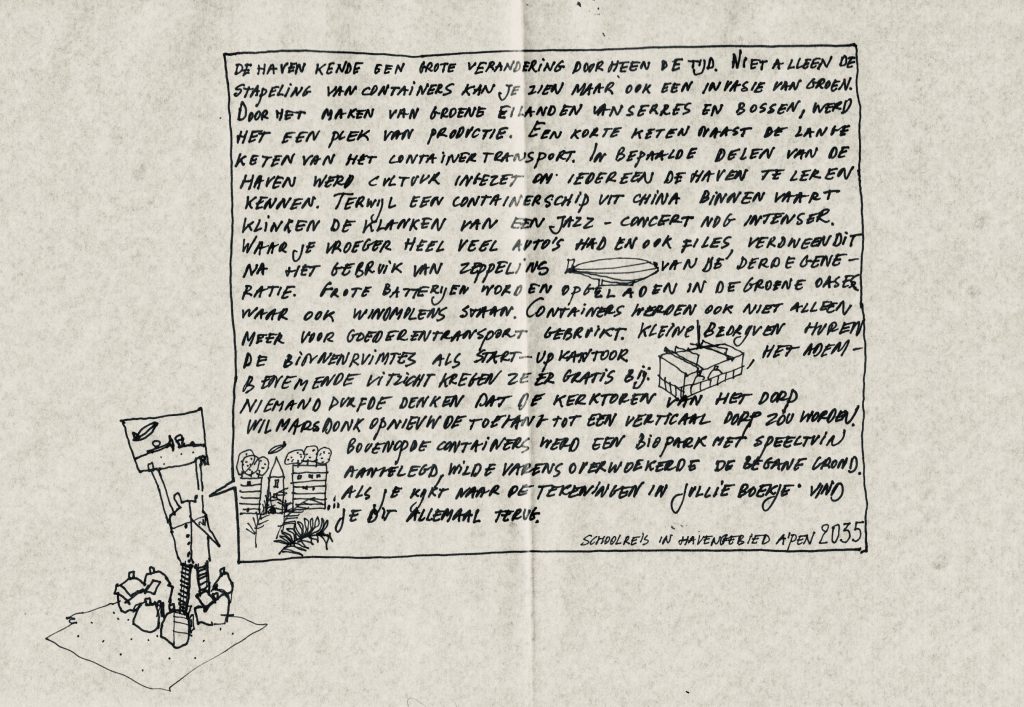 DE HAVEN KENDE EEN GROTE VERANDERING DOORHEEN DE TIJD. NIET ALLEEN DE
STAPELING VAN CONTAINERS KAN JE ZIEN MAAR OOK EEN INVASIE VAN GROEN.
DOOR HET MAKEN VAN GROENE EILANDEN VAN SERRES EN BOSSEN, WERD
HET EEN PLEK VAN PRODUCTIE. EEN KORTE KETEN NAAST DE LANGE
KETEN VAN HET CONTAINERTRANSPORT. IN BEPAALDE DELEN VAN DE
HAVEN WERD CULTUUR INGEZET OM IEDEREEN DE HAVEN TE LEREN
KENNEN. TERWIJL EEN CONTAINERSCHIP UIT CHINA BINNEN VAART
KLINKEN DE KLANKEN VAN EEN JAZZ-CONCERT NOG INTENSER.
WAAR JE VROEGER HEEL VEEL AUTO'S HAD EN OOK FILES, VERDWEEN DIT
NA HET GEBRUIK VAN ZEPPELINS VAN DE DERDE GENE-
RATIE. GROTE BATTERIJEN WORDEN OPGELADEN IN DE GROENE OASES
WAAR OOK WINDMOLENS STAAN. CONTAINERS WERDEN OOK NIET ALLEEN
MEER VOOR GOEDERENTRANSPORT GEBRUIKT. KLEINE BEDRIJVEN HUREN
DE BINNENRUIMTES ALS START-UP KANTOOR, HET ADEM-
BENEMENDE UITZICHT KREGEN ZE ER GRATIS BIJ.
NIEMAND DURFDE DENKEN DAT DE KERKTOREN VAN HET DORP
WILMARSDONK OPNIEUW DE TOEGANG TOT EEN VERTICAAL DORP ZOU WORDEN.
BOVENOP DE CONTAINERS WERD EEN BIOPARK MET SPEELTUIN
AANGELEGD, WILDE VARENS OVERWOEKERDE DE BEGANE GROND.
ALS JE KIJKT NAAR DE TEKENINGEN IN JULLIE BOEKJE VIND
JE DIT ALLEMAAL TERUG.
SCHOOLREIS IN HAVENGEBIED A'PEN 2035